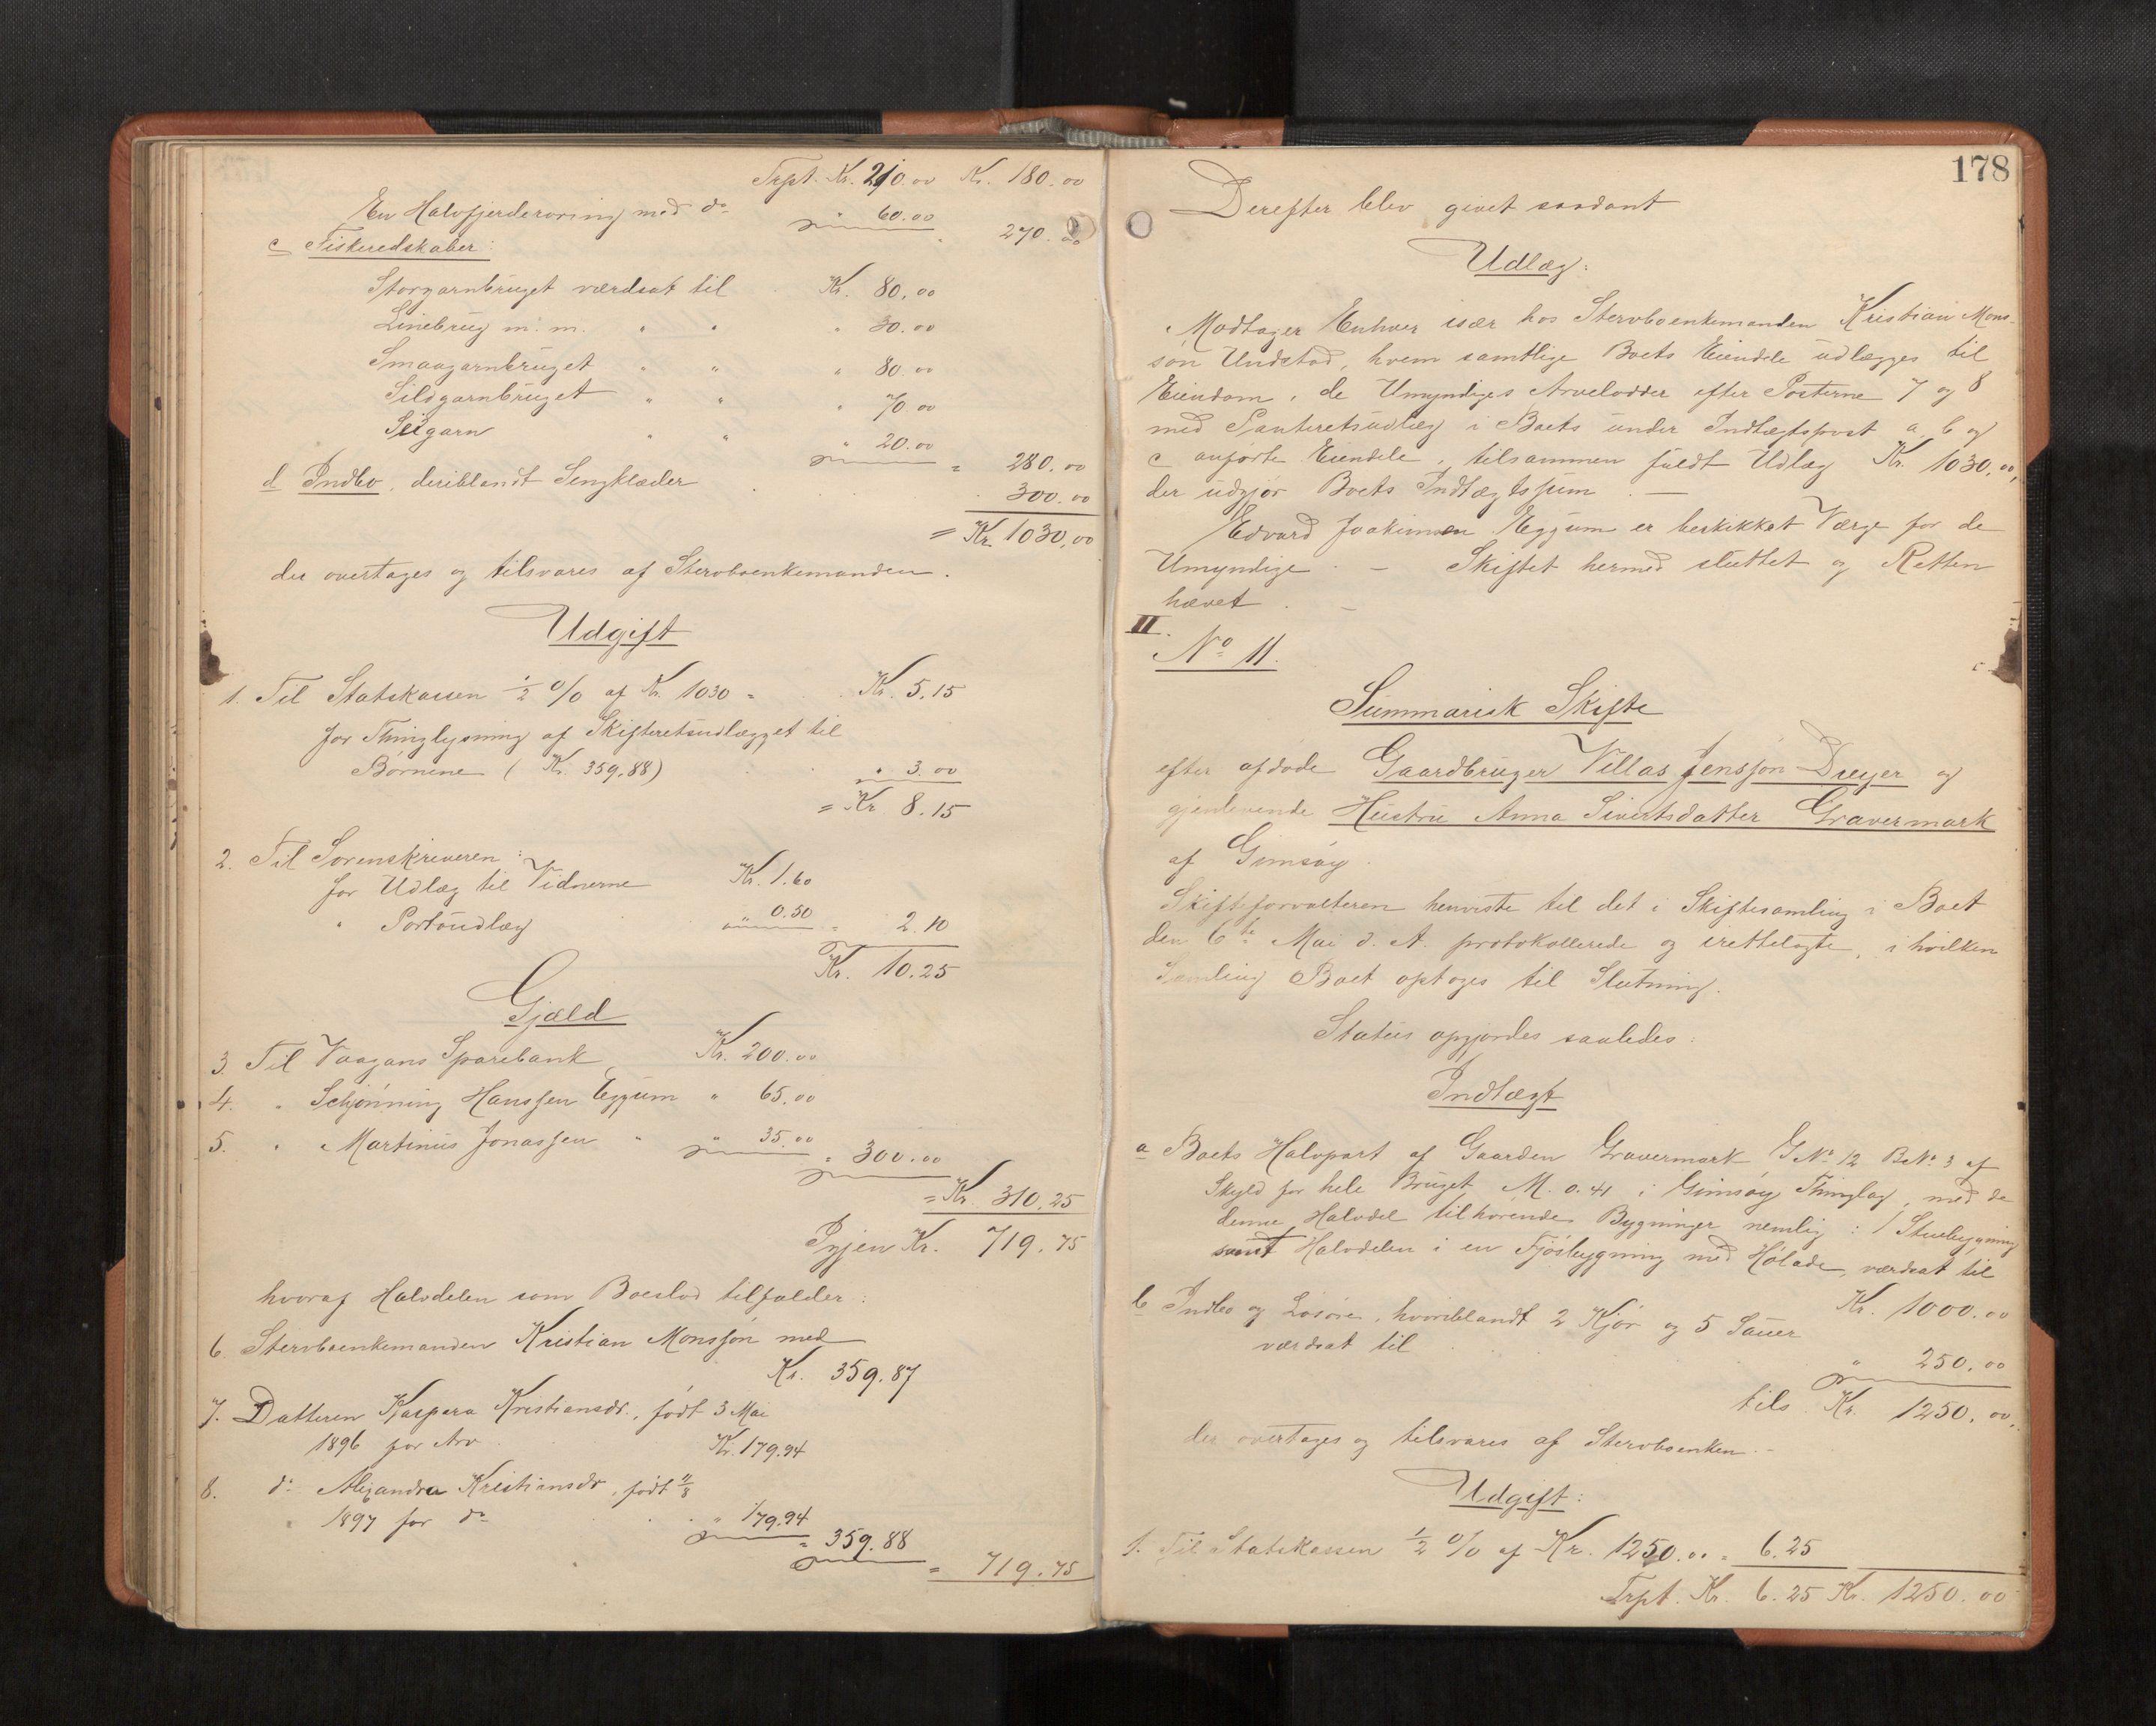 Trpt. Kr. 210.00 Kr. 180.00
En Halvfjerderoring med do " 60.00 " 270.00
c Fiskeredskaber:
Storgarnbruget værdsat til Kr. 80.00
Linebrug m. m. " " " 30.00
Smaagarnbruget " " " 80.00
Sildgarnbruget " " " 70.00
Seigarn " " " 20.00
= 280.00
d Indbo, deriblandt Sengklæder 300.00
= Kr. 1030,00
der overtages og tilsvares af Stervboenkemanden.
Udgift
1. Til Statskassen ½ % af Kr. 1030 = Kr. 5.15
for Thinglysning af Skifteretsudlægget til
Børnene (Kr. 359.88) " 3.00
= Kr. 8.15
2. Til Sorenskriveren:
for Udlæg til Vidnerne Kr. 1.60
" Portoudlæg " 0.50 = 2.10
Kr. 10.25
Gjæld
3. Til Vaagans Sparebank Kr. 200.00
4. " Schjønning Hanssen Eggum " 65.00
5. " Martinus Jonassen " " 35.00 = 300.00
= Kr. 310.25
Igjen Kr. 719.75
hvoraf Halvdelen som Boeslod tilfalder:
6. Stervboenkemanden Kristian Monssøn med
Kr. 359.87
7. Datteren Kaspera Kristiansdr., født 3 Mai
1896 for Arv Kr. 179.94
8. do Alexandra Kristiansdr, født 11/8
1897 for do " 179.94
= 359.88
= 719.75
178
Derefter blev givet saadant
Udlæg:
Modtager Enhver især hos Stervboenkemanden Kristian Mons-
søn Undstad, hvem samtlige Boets Eiendele udlægges til
Eiendom, de Umyndiges Arvelodder efter Posterne 7 og 8
med Panteretsudlæg i Boets under Indtægtspost a, b og
c anførte Eiendele, tilsammen fuldt Udlæg Kr. 1030,00,
der udgjør Boets Indtægtssum. —
Edvard Joakimsen Eggum er beskikket Værge for de
Umyndige. — Skiftet hermed sluttet og Retten
hævet. —
II.
No 11.
Summarisk Skifte
efter afdøde Gaardbruger Villas Jenssøn Dreyer og
gjenlevende Hustru Anna Sivertsdatter Gravermark
af Gimsøy.
Skifteforvalteren henviste til det i Skiftesamling i Boet
den 6te Mai d. A. protokollerede og irettelagte, i hvilken
Samling Boet optoges til Slutning.
Status opgjordes saaledes:
Indtægt
a Boets Halvpart af Gaarden Gravermark G No 12 B No 3 af
Skyld for hele Bruget M. 0.41 i Gimsøy Thinglag, med de
denne Halvdel tilhørende Bygninger nemlig: 1 Stuebygning
samt Halvdelen i en Fjøsbygning med Hølade, værdsat til
Kr. 1000.00
b Indbo og Løsøre, hvoriblandt 2 Kjør og 5 Sauer
værdsat til " 250.00
tils. Kr. 1250.00.
der overtages og tilsvares af Stervboenken. —
Udgift:
1. Til Statskassen ½ % af Kr. 1250.00 = 6.25
Trpt. Kr. 6.25 Kr. 1250.00